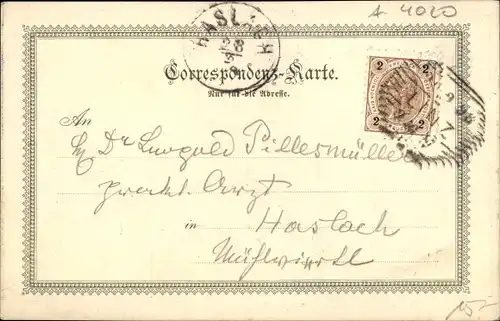 A 4020
HASLACH
28
Correspondenz-Karte.
Nur für die Adresse.
2 2
2 2
An
Hr Dr Leopold Pillesmüller
prackt. Arzt
in Haslach
Mühlviertl
15-